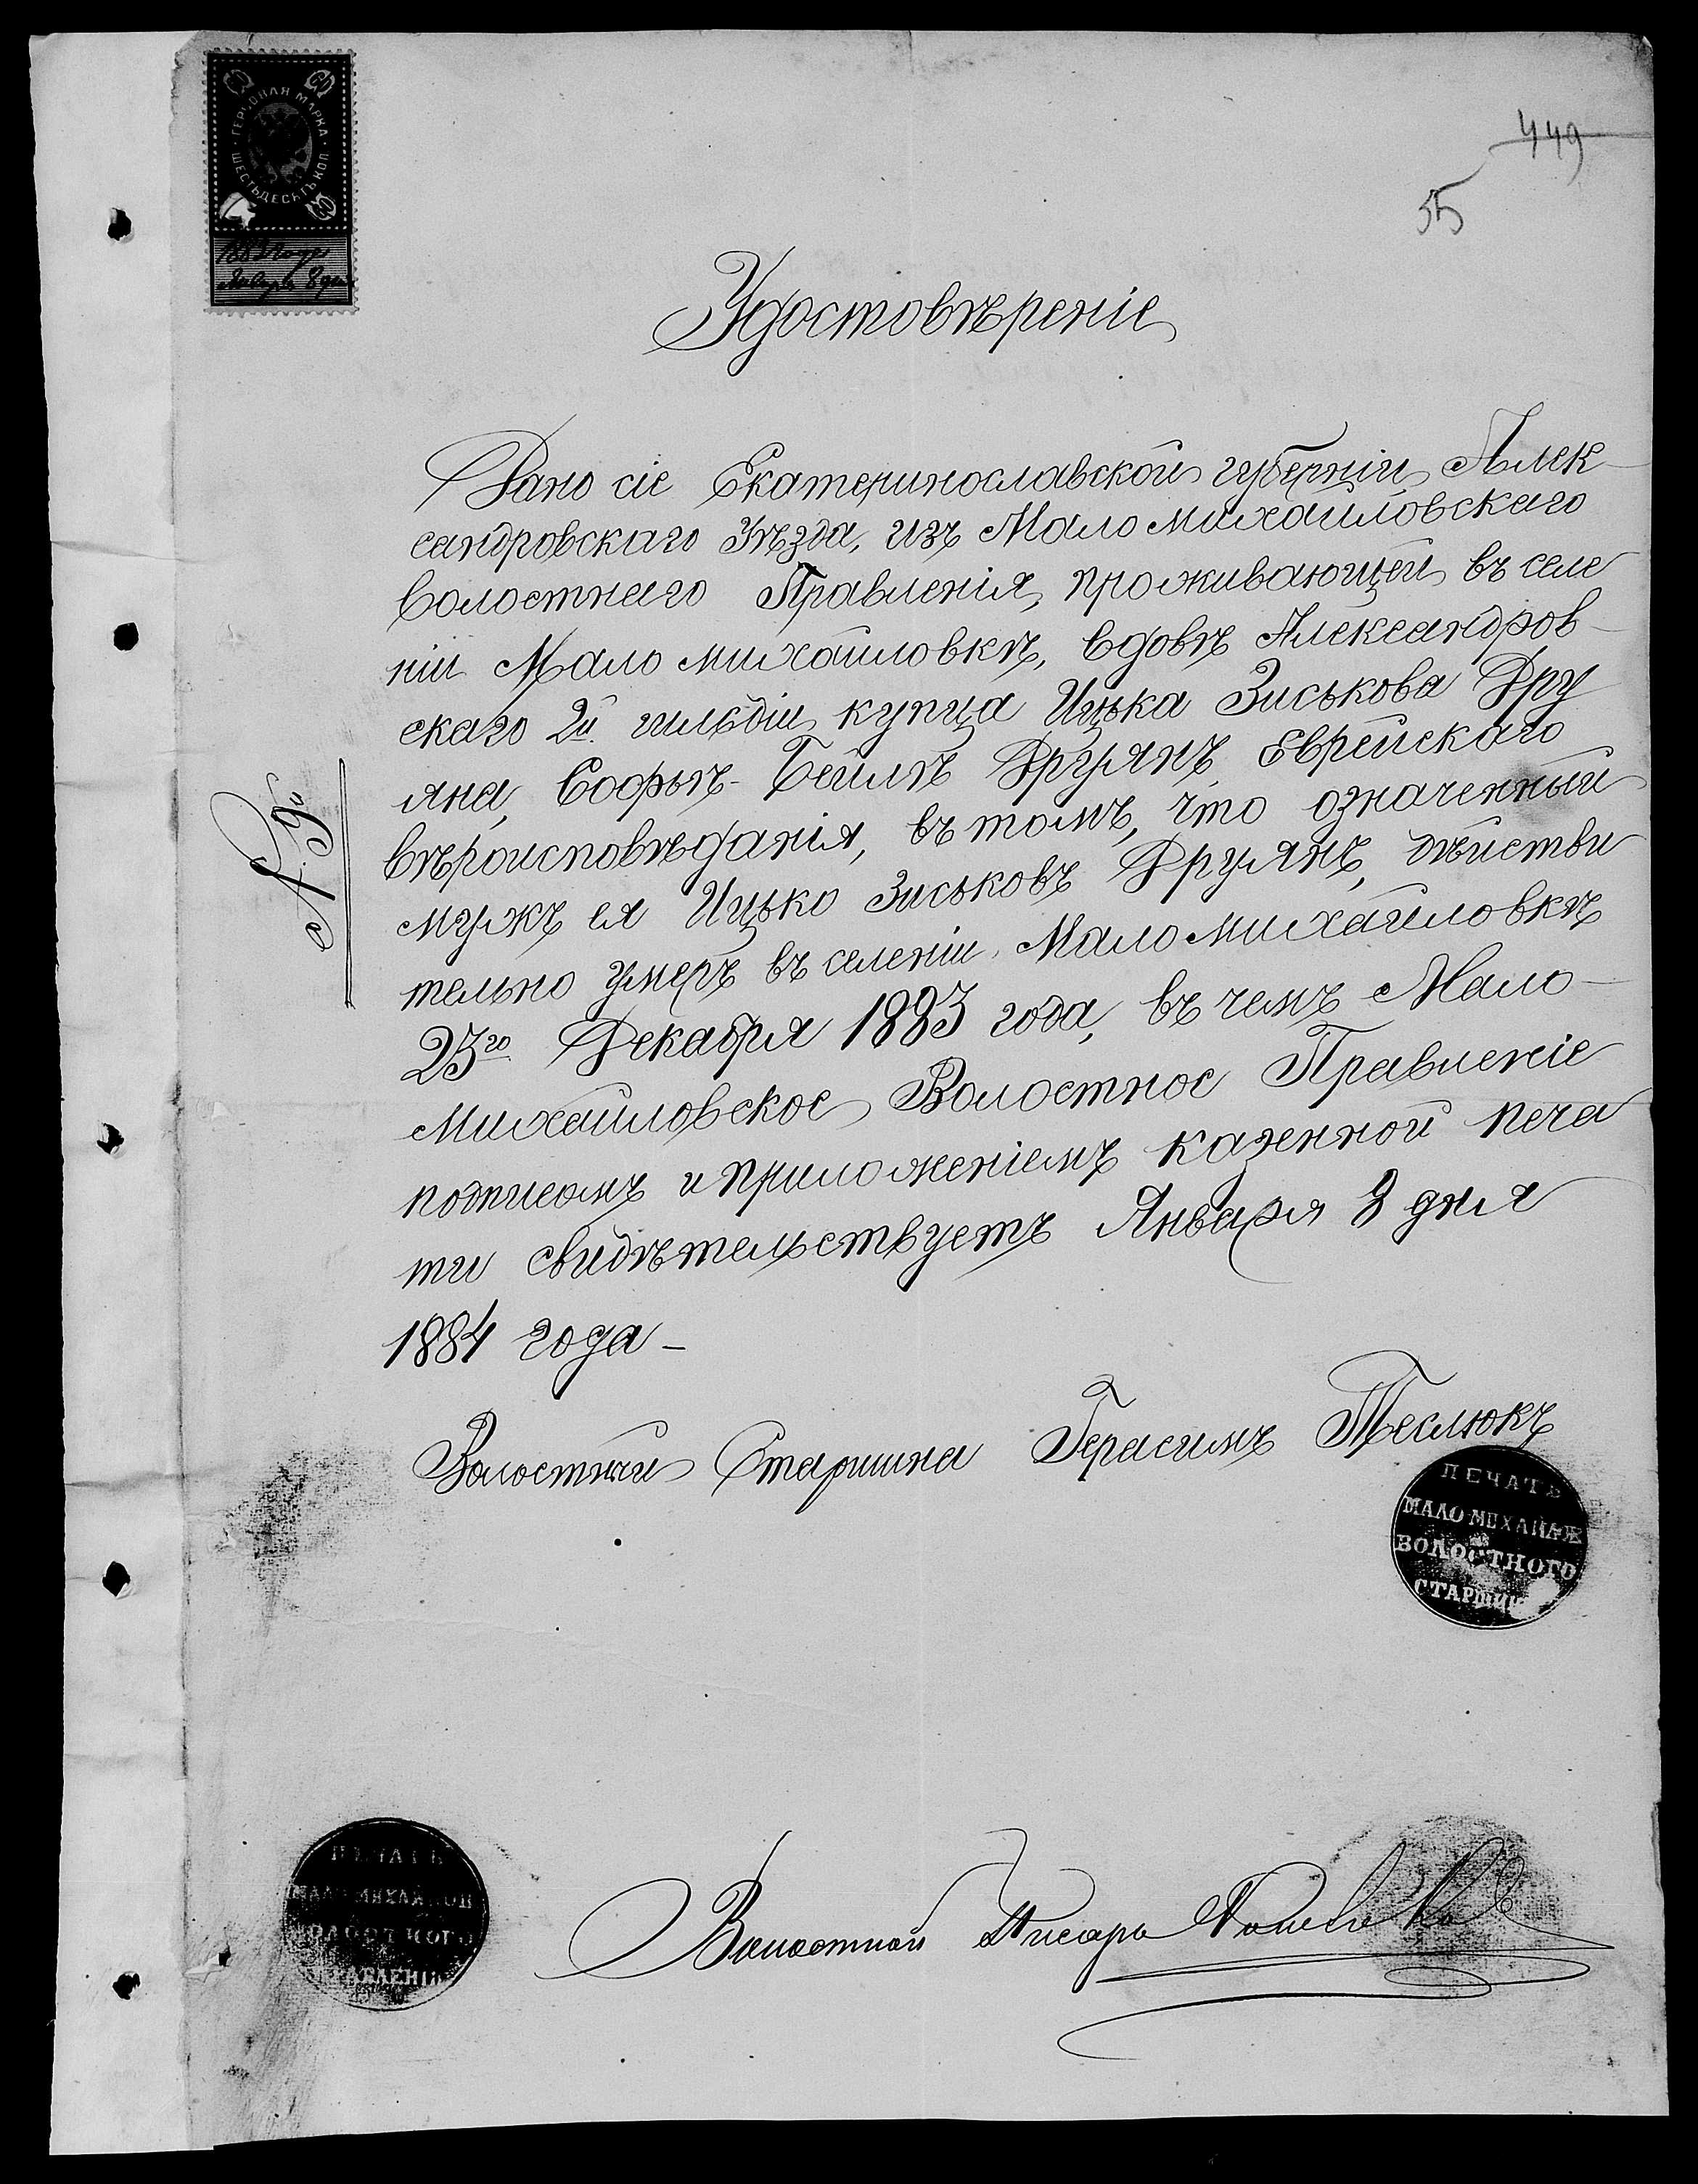 ГЕРБОВАЯ МАРКА
ШЕСТЬДЕСЯТЪ КОП
60
января 8 дня
449
55
Удостовѣреніе
Дано сіе Екатеринославской губерніи, Алек
сандровскаго Уѣзда, изъ Мало михайловскаго
Волостнаго Правленія, проживающей въ селе
ніи Мало михайловкѣ, Вдовѣ Александров-
скаго 2й гильдіи купца Ицька Зиськова Дру
яна, Софьѣ-Бейлѣ Друянъ, Еврейскаго
вѣроисповѣданія, въ томъ, что означенный
мужъ ея Ицько Зиськовъ Друянъ, дѣйстви
тельно умеръ въ селеніи Мало михайловкѣ
23го Декабря 1883 года, въ чемъ Мало-
михайловское Волостное Правленіе
подписомъ и приложеніемъ казенной печа
ти свидѣтельствуетъ Января 8 дня
1884 года-
№ 9
Волостный Старшина Герасимъ Теслюкъ
ПЕЧАТЬ
МАЛО-МИХАЙЛОВ
ВОЛОСТНОГО
СТАРШИН
Волостной Писарь
ПЕЧАТЬ
МАЛО МИХАЙЛОВ
ВОЛОСТНОГО
ПРАВЛЕНІЯ